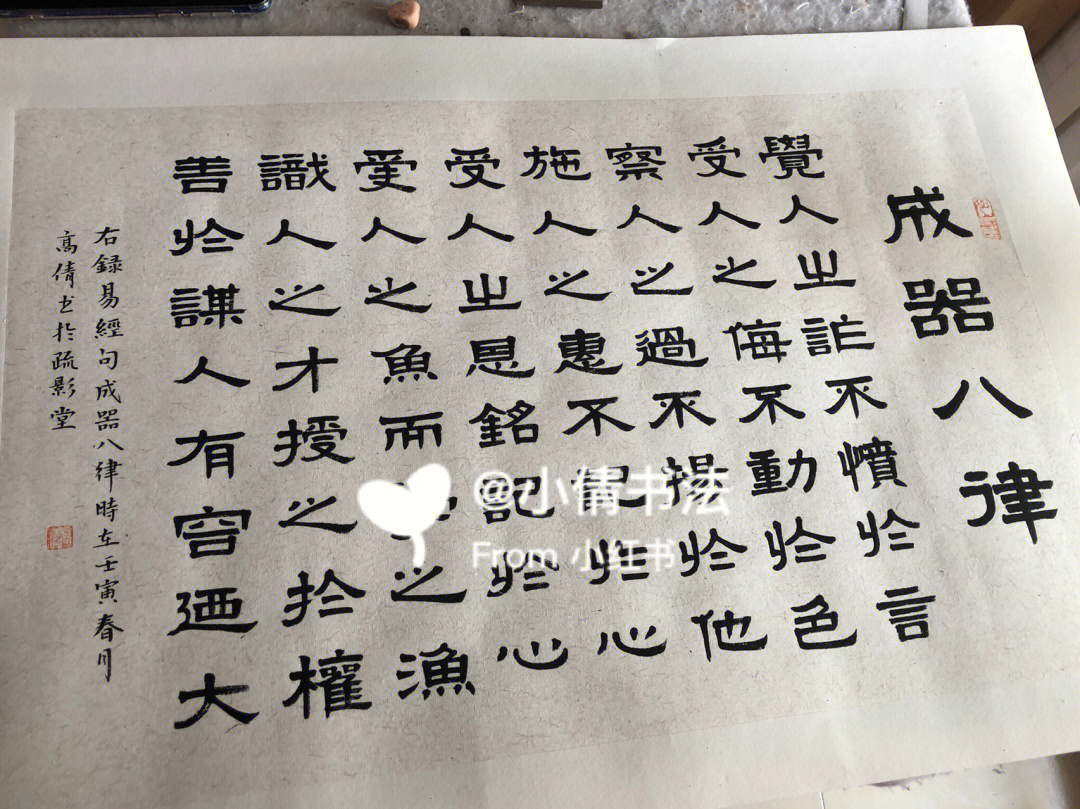 成器八律
覺人之詐不憤於言
受人之侮不動於色
察人之過不揚於他
施人之惠不記於心
受人之恩銘記於心
愛人之魚而之漁
識人之才授之於權
善於謀人有容迺大
右録易經句成器八律時在壬寅春月
高倩书於疏影堂
@小倩书法
From 小红书